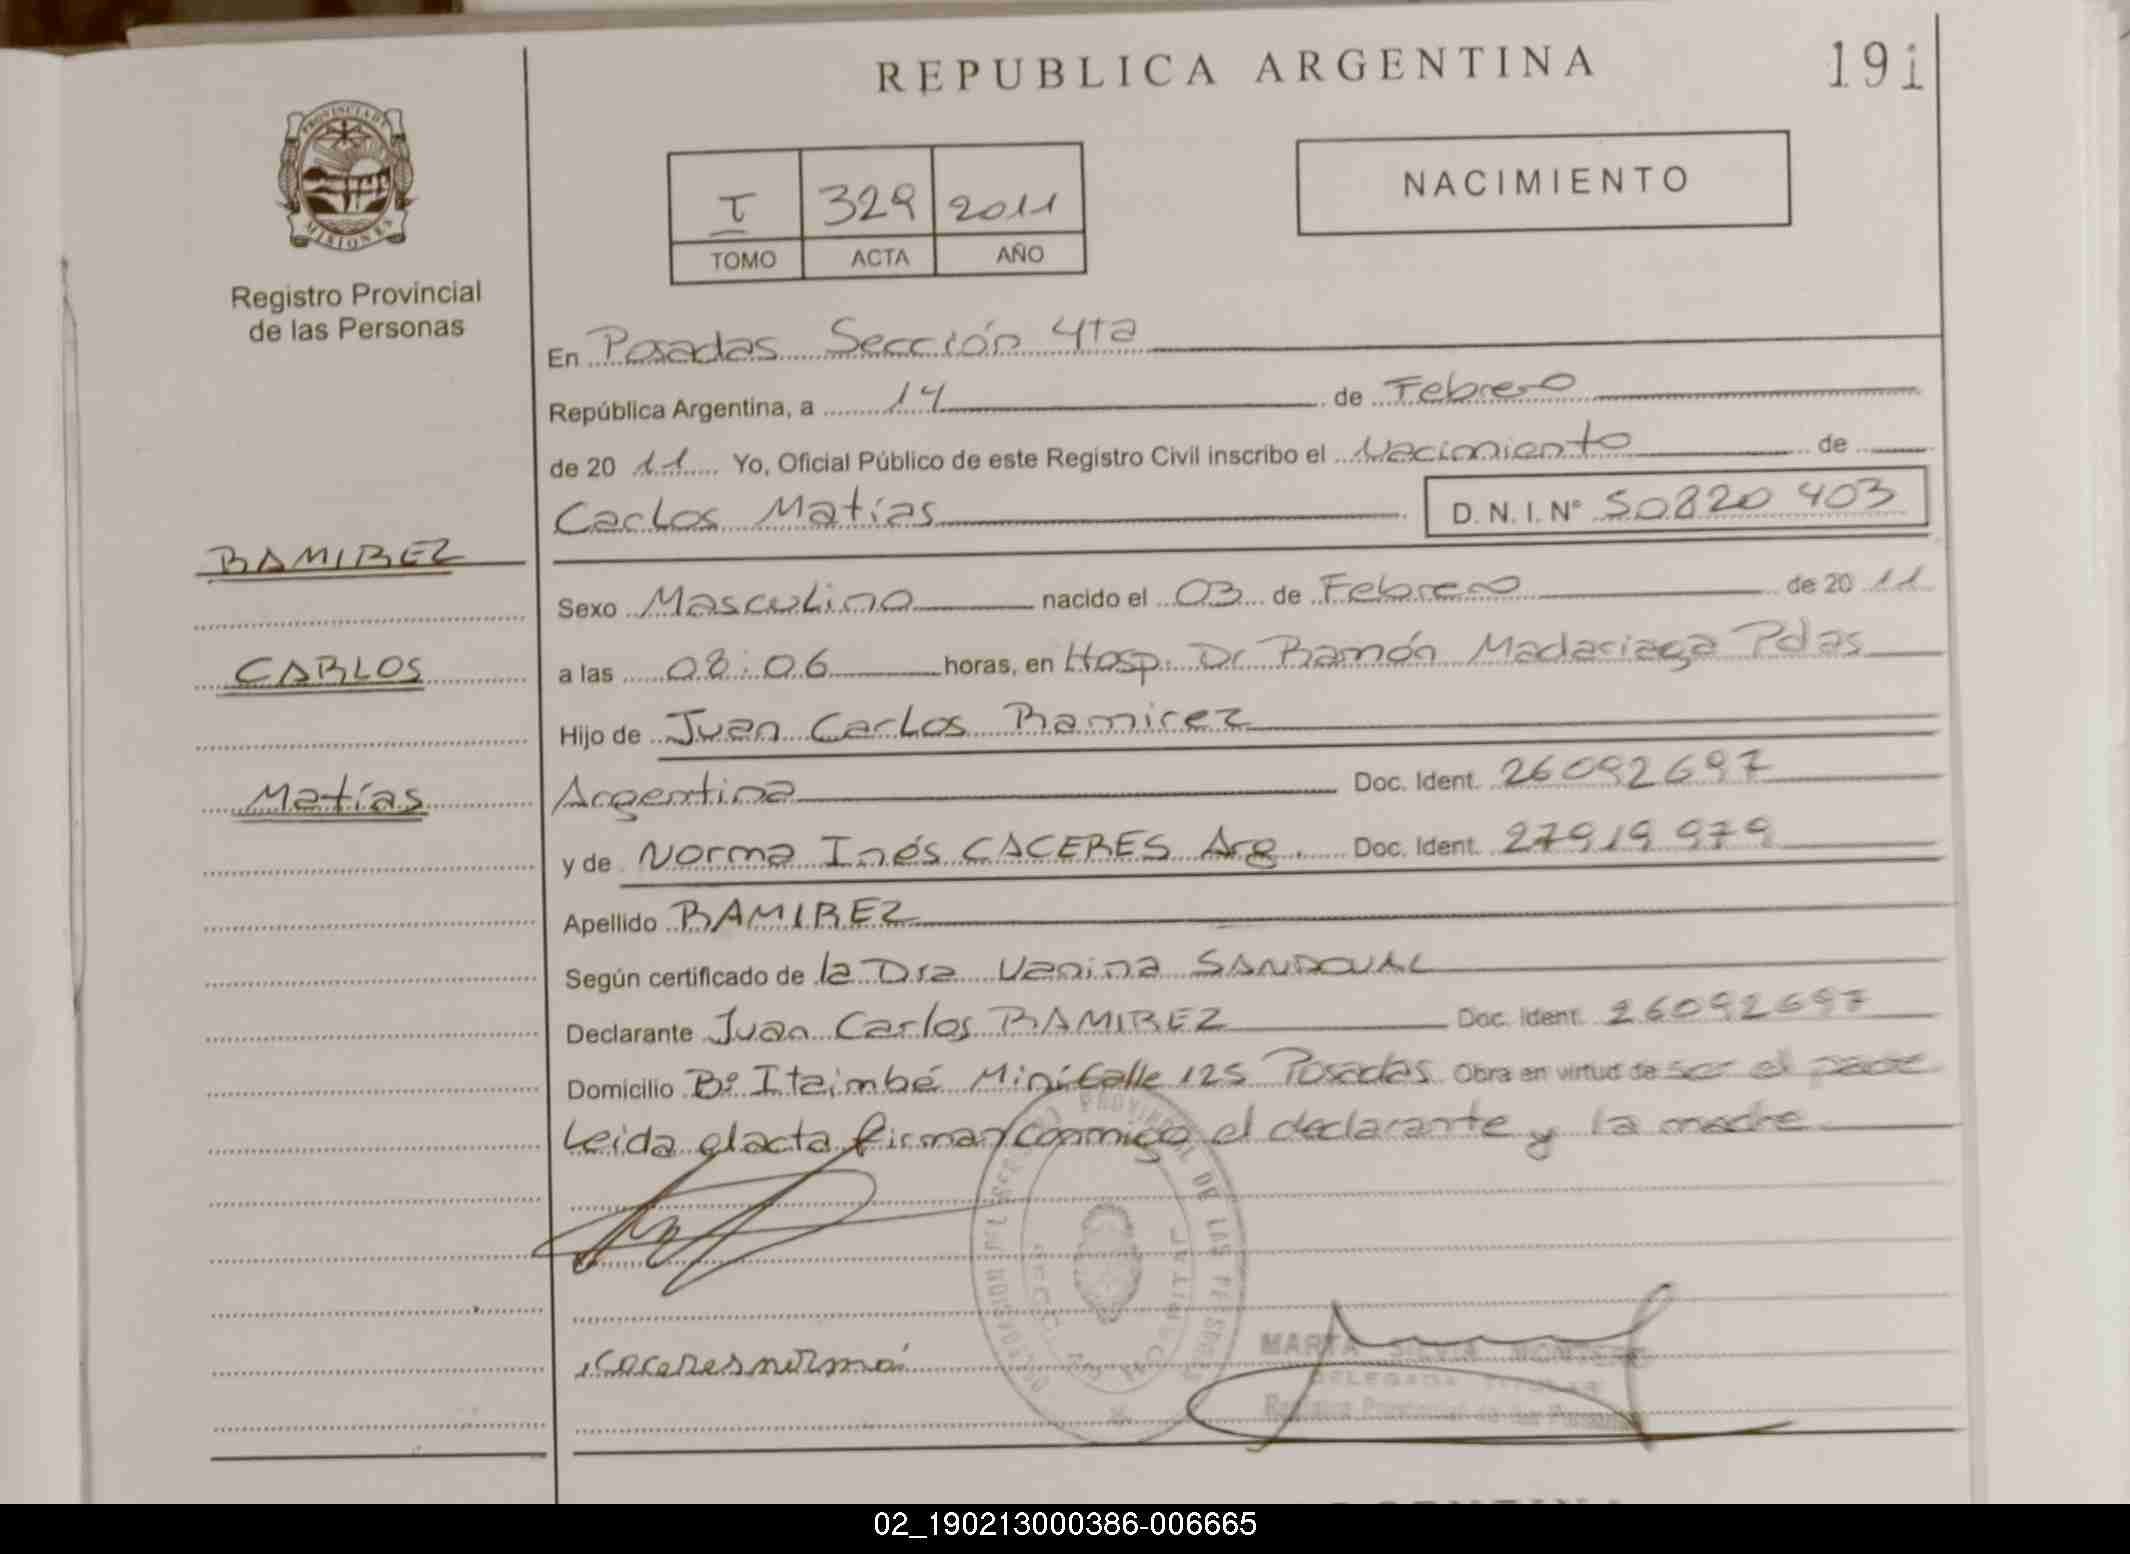 REPUBLICA ARGENTINA
191
PROVINCIA DE
MISIONES
Registro Provincial
de las Personas
I 329 2011
TOMO ACTA AÑO
NACIMIENTO
En Posadas Sección 4ta
República Argentina, a 14 de Febrero
de 20 11 Yo, Oficial Público de este Registro Civil inscribo el Nacimiento de
Carlos Matías D. N. I. N° 50820 403
RAMIREZ
CARLOS
Matías
Sexo Masculino nacido el 03 de Febrero de 20 11
a las 08:06 horas, en Hosp. Dr Ramón Madariaga Pdas
Hijo de Juan Carlos Ramirez
Argentina Doc. Ident. 26092697
y de Norma Inés CACERES Arg. Doc. Ident. 27919979
Apellido RAMIREZ
Según certificado de la Dra Vanina SANDOVAL
Declarante Juan Carlos RAMIREZ Doc. Ident. 26092697
Domicilio B° Itaimbé Miní Calle 125 Posadas Obra en virtud de ser el padre
Leida el acta firman conmigo el declarante y la madre
PROVINCIAL DE LAS PERSONAS
caceres norma
MARTA SILVIA MONTERO
DELEGADA TITULAR
Registro Provincial de las Personas
02_190213000386-006665